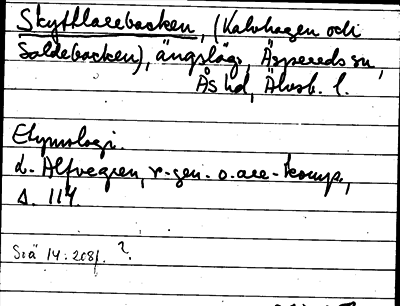 Skyttlarebacken, (Kalvhagen och
Saldebacken), ängslägh, Äspereds sn,
Ås hd, Älvsb. l.
Etymologi.
L. Alfvegren, r-gen. o. are-komp,
s. 114
SIÄ 14:208f. ?